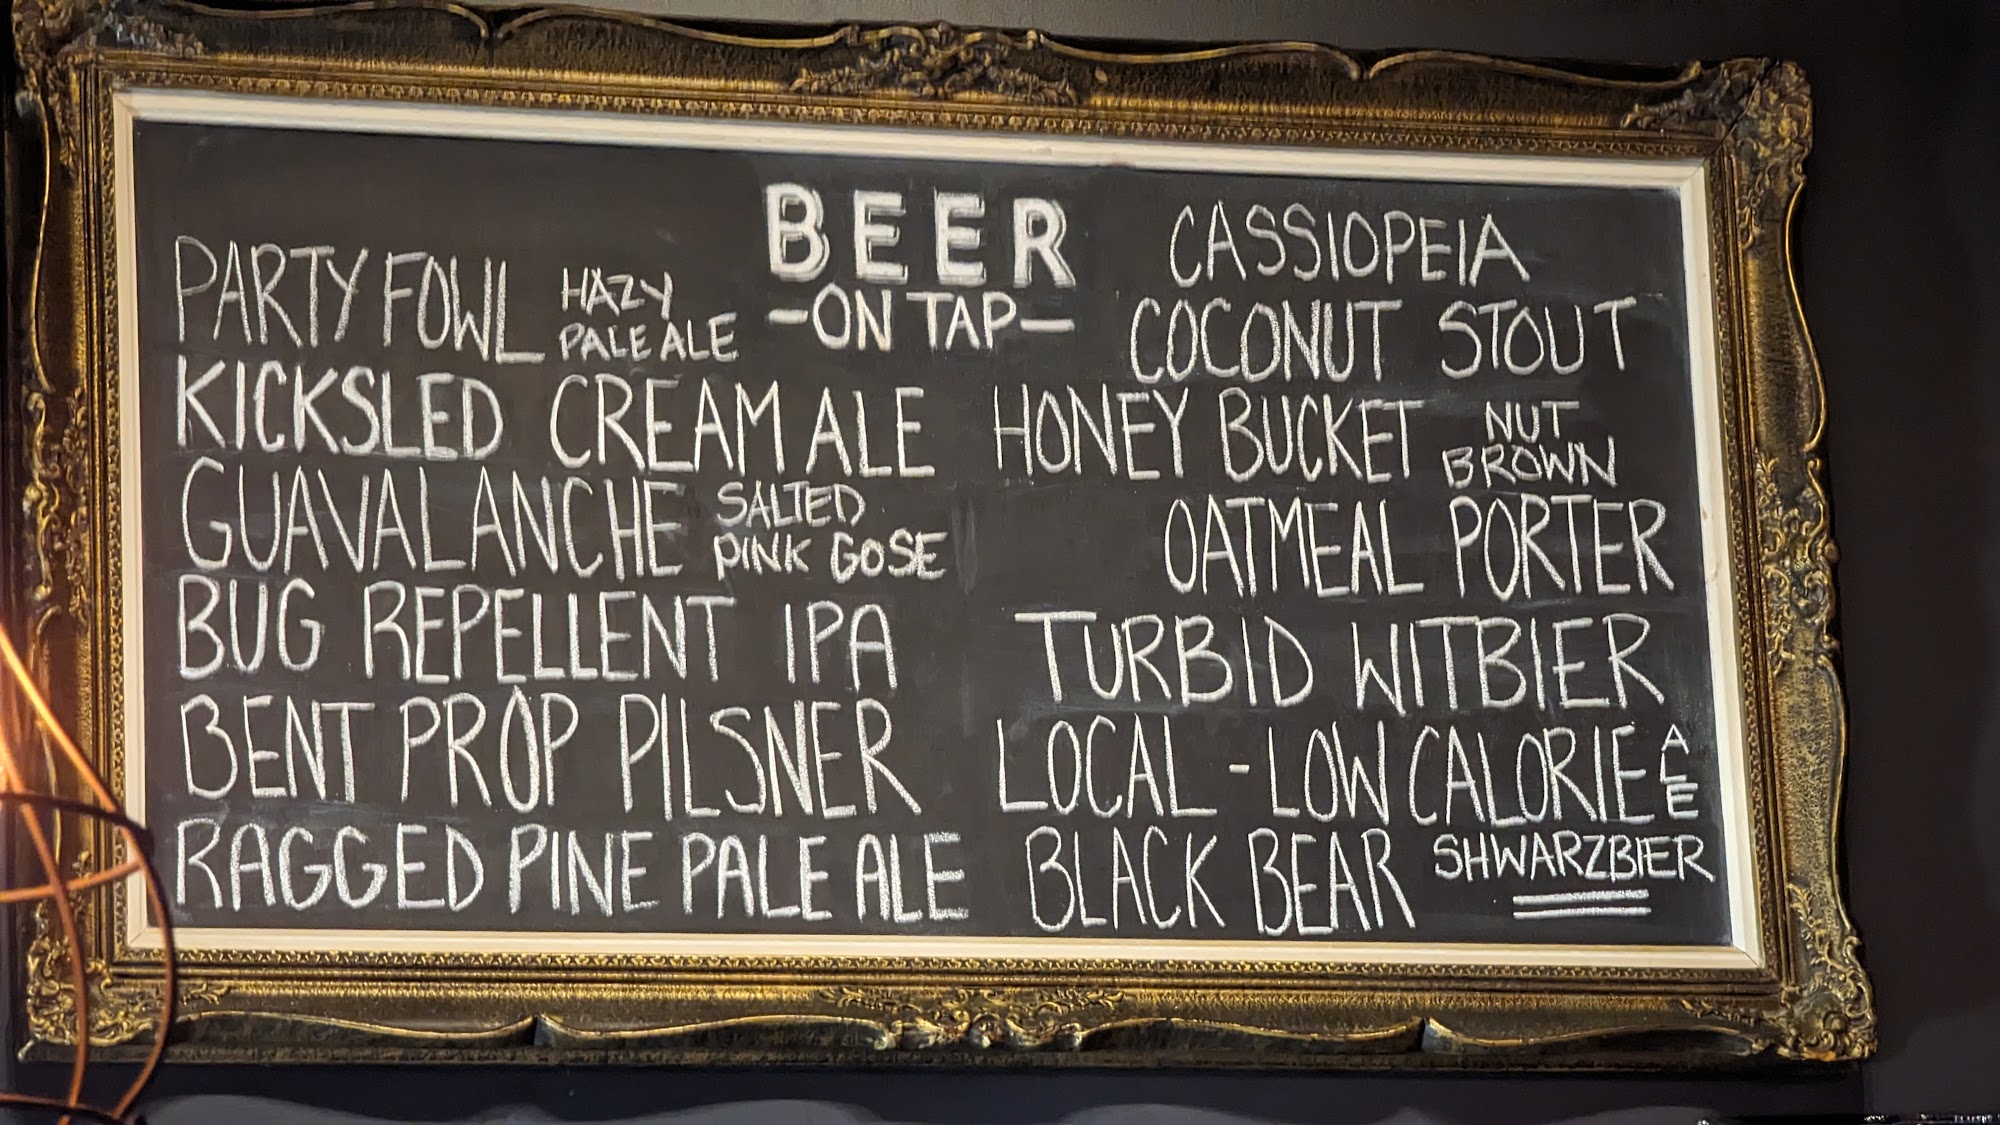 BEER
-ON TAP-
PARTY FOWL HAZY PALE ALE
KICKSLED CREAM ALE
GUAVALANCHE SALTED PINK GOSE
BUG REPELLENT IPA
BENT PROP PILSNER
RAGGED PINE PALE ALE
CASSIOPEIA
COCONUT STOUT
HONEY BUCKET NUT BROWN
OATMEAL PORTER
TURBID WITBIER
LOCAL - LOW CALORIE ALE
BLACK BEAR SHWARZBIER